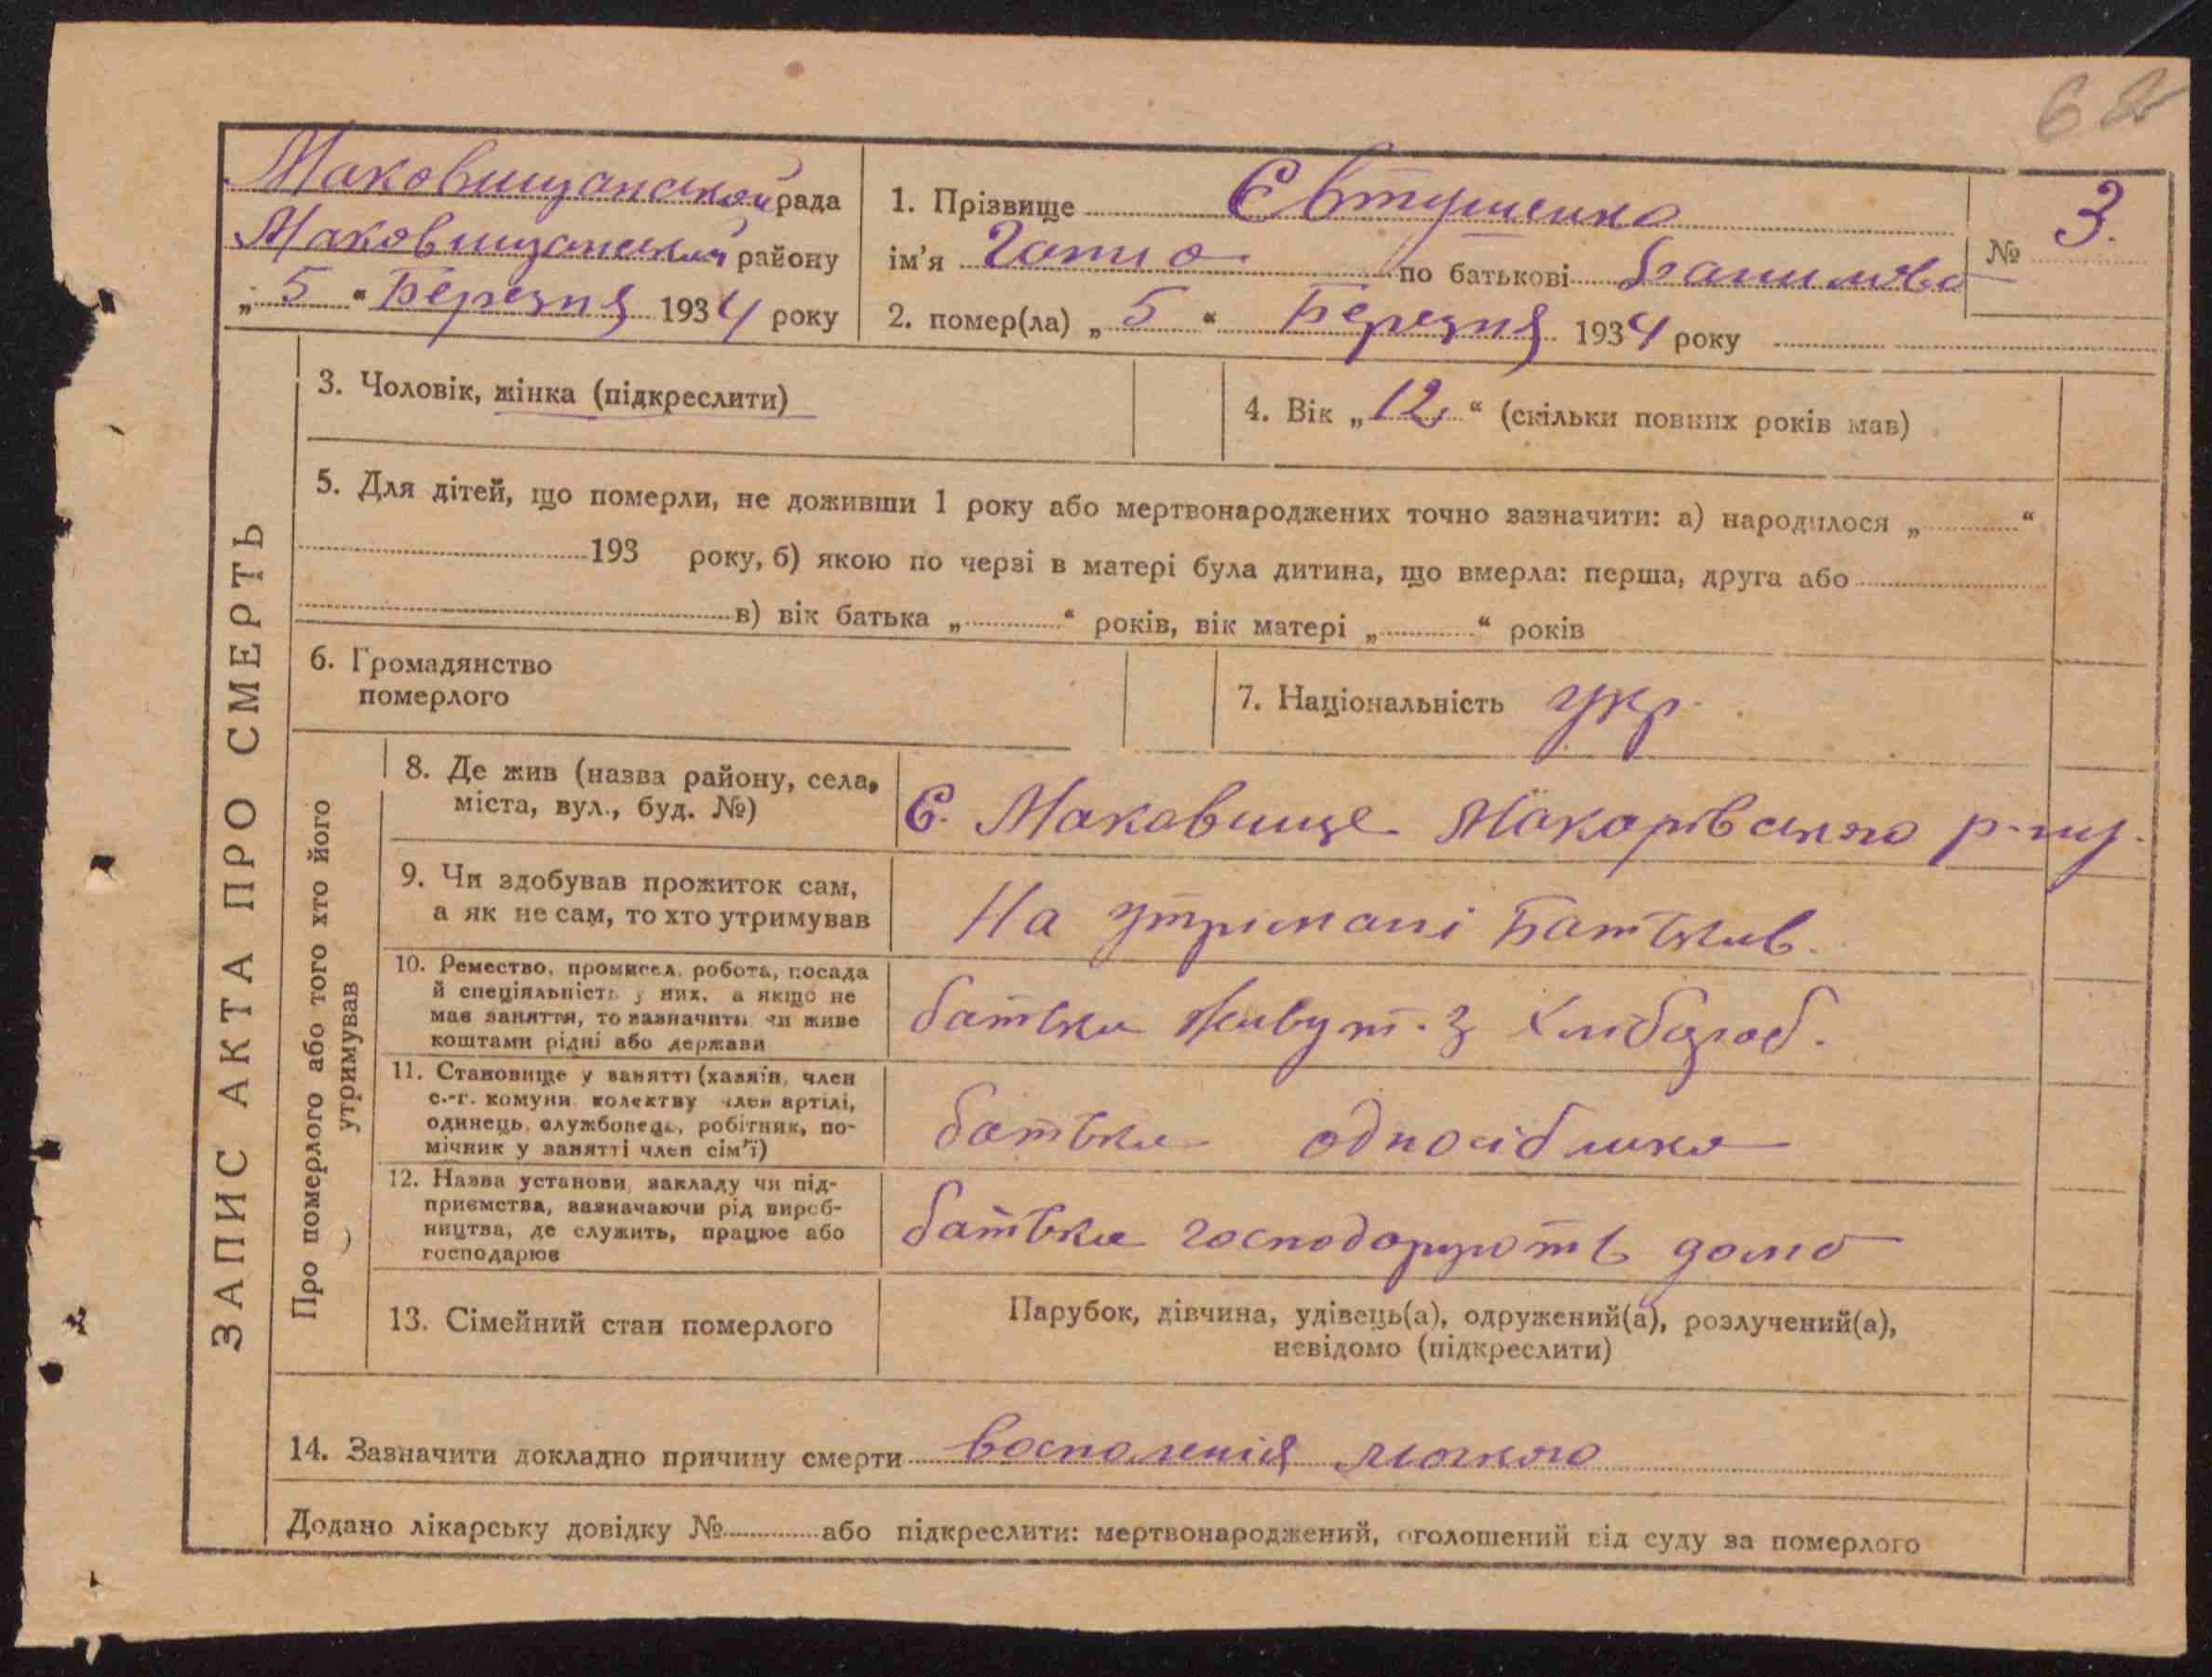 Маковищанской рада
Маковищанский району
„5“ Березня 1934 року
1. Прізвище Євтушенко
ім'я Ганна по батькові Данилова
№ 3.
2. помер(ла) „5“ Березня 1934 року
3. Чоловік, жінка (підкреслити)
4. Вік „12“ (скільки повних років мав)
5. Для дітей, що померли, не доживши 1 року або мертвонароджених точно зазначити: а) народилося „ “
193 року, б) якою по черзі в матері була дитина, що вмерла: перша, друга або
в) вік батька „ “ років, вік матері „ “ років
6. Громадянство
померлого
7. Національність укр.
ЗАПИС АКТА ПРО СМЕРТЬ
Про померлого або того хто його
утримував
8. Де жив (назва району, села,
міста, вул., буд. №)
С. Маковище Макарівського р-ну.
9. Чи здобував прожиток сам,
а як не сам, то хто утримував
На утримані Батьків.
10. Ремество, промисел, робота, посада
й спеціяльність у них, а якщо не
має заняття, то зазначити чи живе
коштами рідні або держави
батьки живут. з хлібороб.
11. Становище у занятті (хазяїн, член
с.-г. комуни, колектву член артілі,
одинець, службовець, робітник, по-
мічник у занятті член сім'ї)
батьки односібники
12. Назва установи, закладу чи під-
приємства, зазначаючи рід вироб-
ництва, де служить, працює або
господарює
батьки господорують дома
13. Сімейний стан померлого
Парубок, дівчина, удівець(а), одружений(а), розлучений(а),
невідомо (підкреслити)
14. Зазначити докладно причину смерти воспаленія
Додано лікарську довідку № або підкреслити: мертвонароджений, оголошений від суду за померлого